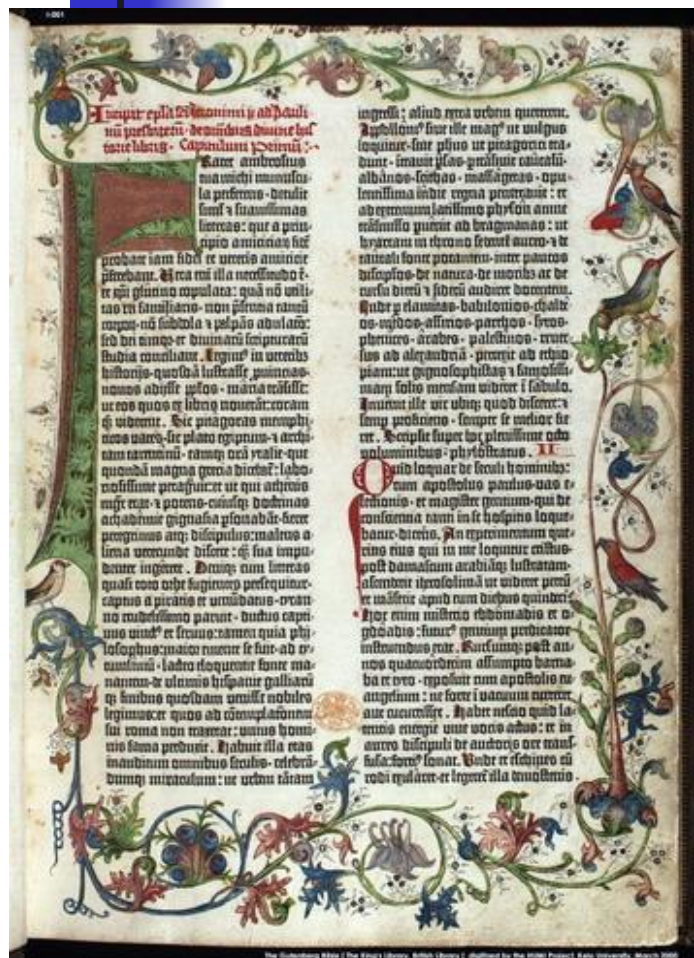 I-001
Incipit epla sci iheronimi p̄ ad Pauli-
nū presbiterū · de omibus diuine his-
torie libris · Capitulum Primū :
Frater ambrosius
tua michi munuscu-
la perferens · detulit
siml' et suauissimas
litteras : que a prin-
cipio amiciciar̄ fidē
probate iam fidei et veteris amicicie
noua preferebant. Vera em illa necessitudo ē ·
et xpi glutino copulata : quā nō vtili-
tas rei familiaris · non pn̄tia tantū
corporū · nō subdola et palpās adulatō :
sed dei timor · et diuinarū scripturarū
studia conciliant. Legimus in veteribs
historijs · quosdā lustrasse prouincias ·
nouos adijsse pplos · maria trāsisse :
ut eos quos ex libris nouerāt : coram
quoqȝ viderent. Sic pitagoras memphi-
ticos vates · sic plato egiptum · et archi-
tam tarentinū · eamqȝ orā ytalie · que
quondā magna grecia dicebat : labo-
riosissime peragrauit : et ut qui athenis
mgr̄ erat · et potens · cuiusqȝ doctrinas
achademie gignasia psonabāt · fieret
peregrinus atqȝ discipulus : malens a-
liena verecunde discere : qȝ sua impu-
denter ingerere. Deniqȝ cum litteras
quasi toto orbe fugientes persequitur ·
captus a piratis et venūdatus · tyran-
no crudelissimo paruit · ductus capti-
uus vinctus et seruus : tamen quia phi-
losophus : maior emente se fuit · ad ty-
tumliuiū · lacteo eloquentie fonte ma-
nantem · de vltimis hispanie galliarū-
qȝ finibus · quosdam venisse nobiles
legimus : et quos ad cōtemplationem
sui roma non traxerat : vnius homi-
nis fama perduxit. Habuit illa etas
inauditum omnibus seculis · celebrā-
dumqȝ miraculum : ut vrbem tātam
ingressi : aliud extra vrbem quererent.
Appollonius siue ille magus ut vulgus
loquitur · siue phus · ut pitagorici tra-
dunt · intrauit psas · ptransiuit caucasū ·
albanos · scithas · massagetas · opu-
lentissima indie regna penetrauit : et
ad extremum latissimo physon amne
trāsmisso puenit ad bragmanas : ut
hyarcam in throno sedentē aureo · et de
tantali fonte potantem · inter paucos
discipulos · de natura · de moribs ac de
cursu dierū et siderū audiret docentem.
Inde p elamitas · babilonios · chalde-
os · medos · assirios · parthos · syros ·
phenices · arabes · palestinos · reuer-
sus ad alexandriā · perrexit ad ethio-
piam : ut gignosophistas et famosissi-
mam solis mensam videret ī sabulo.
Inuenit ille vir vbiqȝ quod disceret : et
semp proficiens · semper se melior fie-
ret. Scripsit super hoc plenissime octo
voluminibus · phylostratus. II
Quid loquar de seculi hominibs :
cum apostolus paulus · vas e-
lectionis · et magister gentium · qui de
conscientia tanti in se hospitis loque-
batur · dicens. An experimentum que-
ritis eius qui in me loquitur cristus ·
post damascum arabiāqȝ lustratam ·
ascenderit iherosolimā ut videret petrū
et māserit apud eum diebus quindecī.
Hoc enim misterio ebdomadis et o-
gdoadis : futurus gentium predicator
instruendus erat. Rursumqȝ post an-
nos quatuordecim assumpto barna-
ba et tyto · exposuit cum apostolis eu-
angelium : ne forte ī vacuum curreret
aut cucurrisset. Habet nescio quid la-
tentis energie · viue vocis actus : et in
aures discipuli de auctoris ore trans-
fusa : fortius sonat. Vnde et eschines cū
rodi exularet · et legeretur illa demostenis
The Gutenberg Bible | The King's Library, British Library | digitised by the HUMI Project, Keio University, March 2000